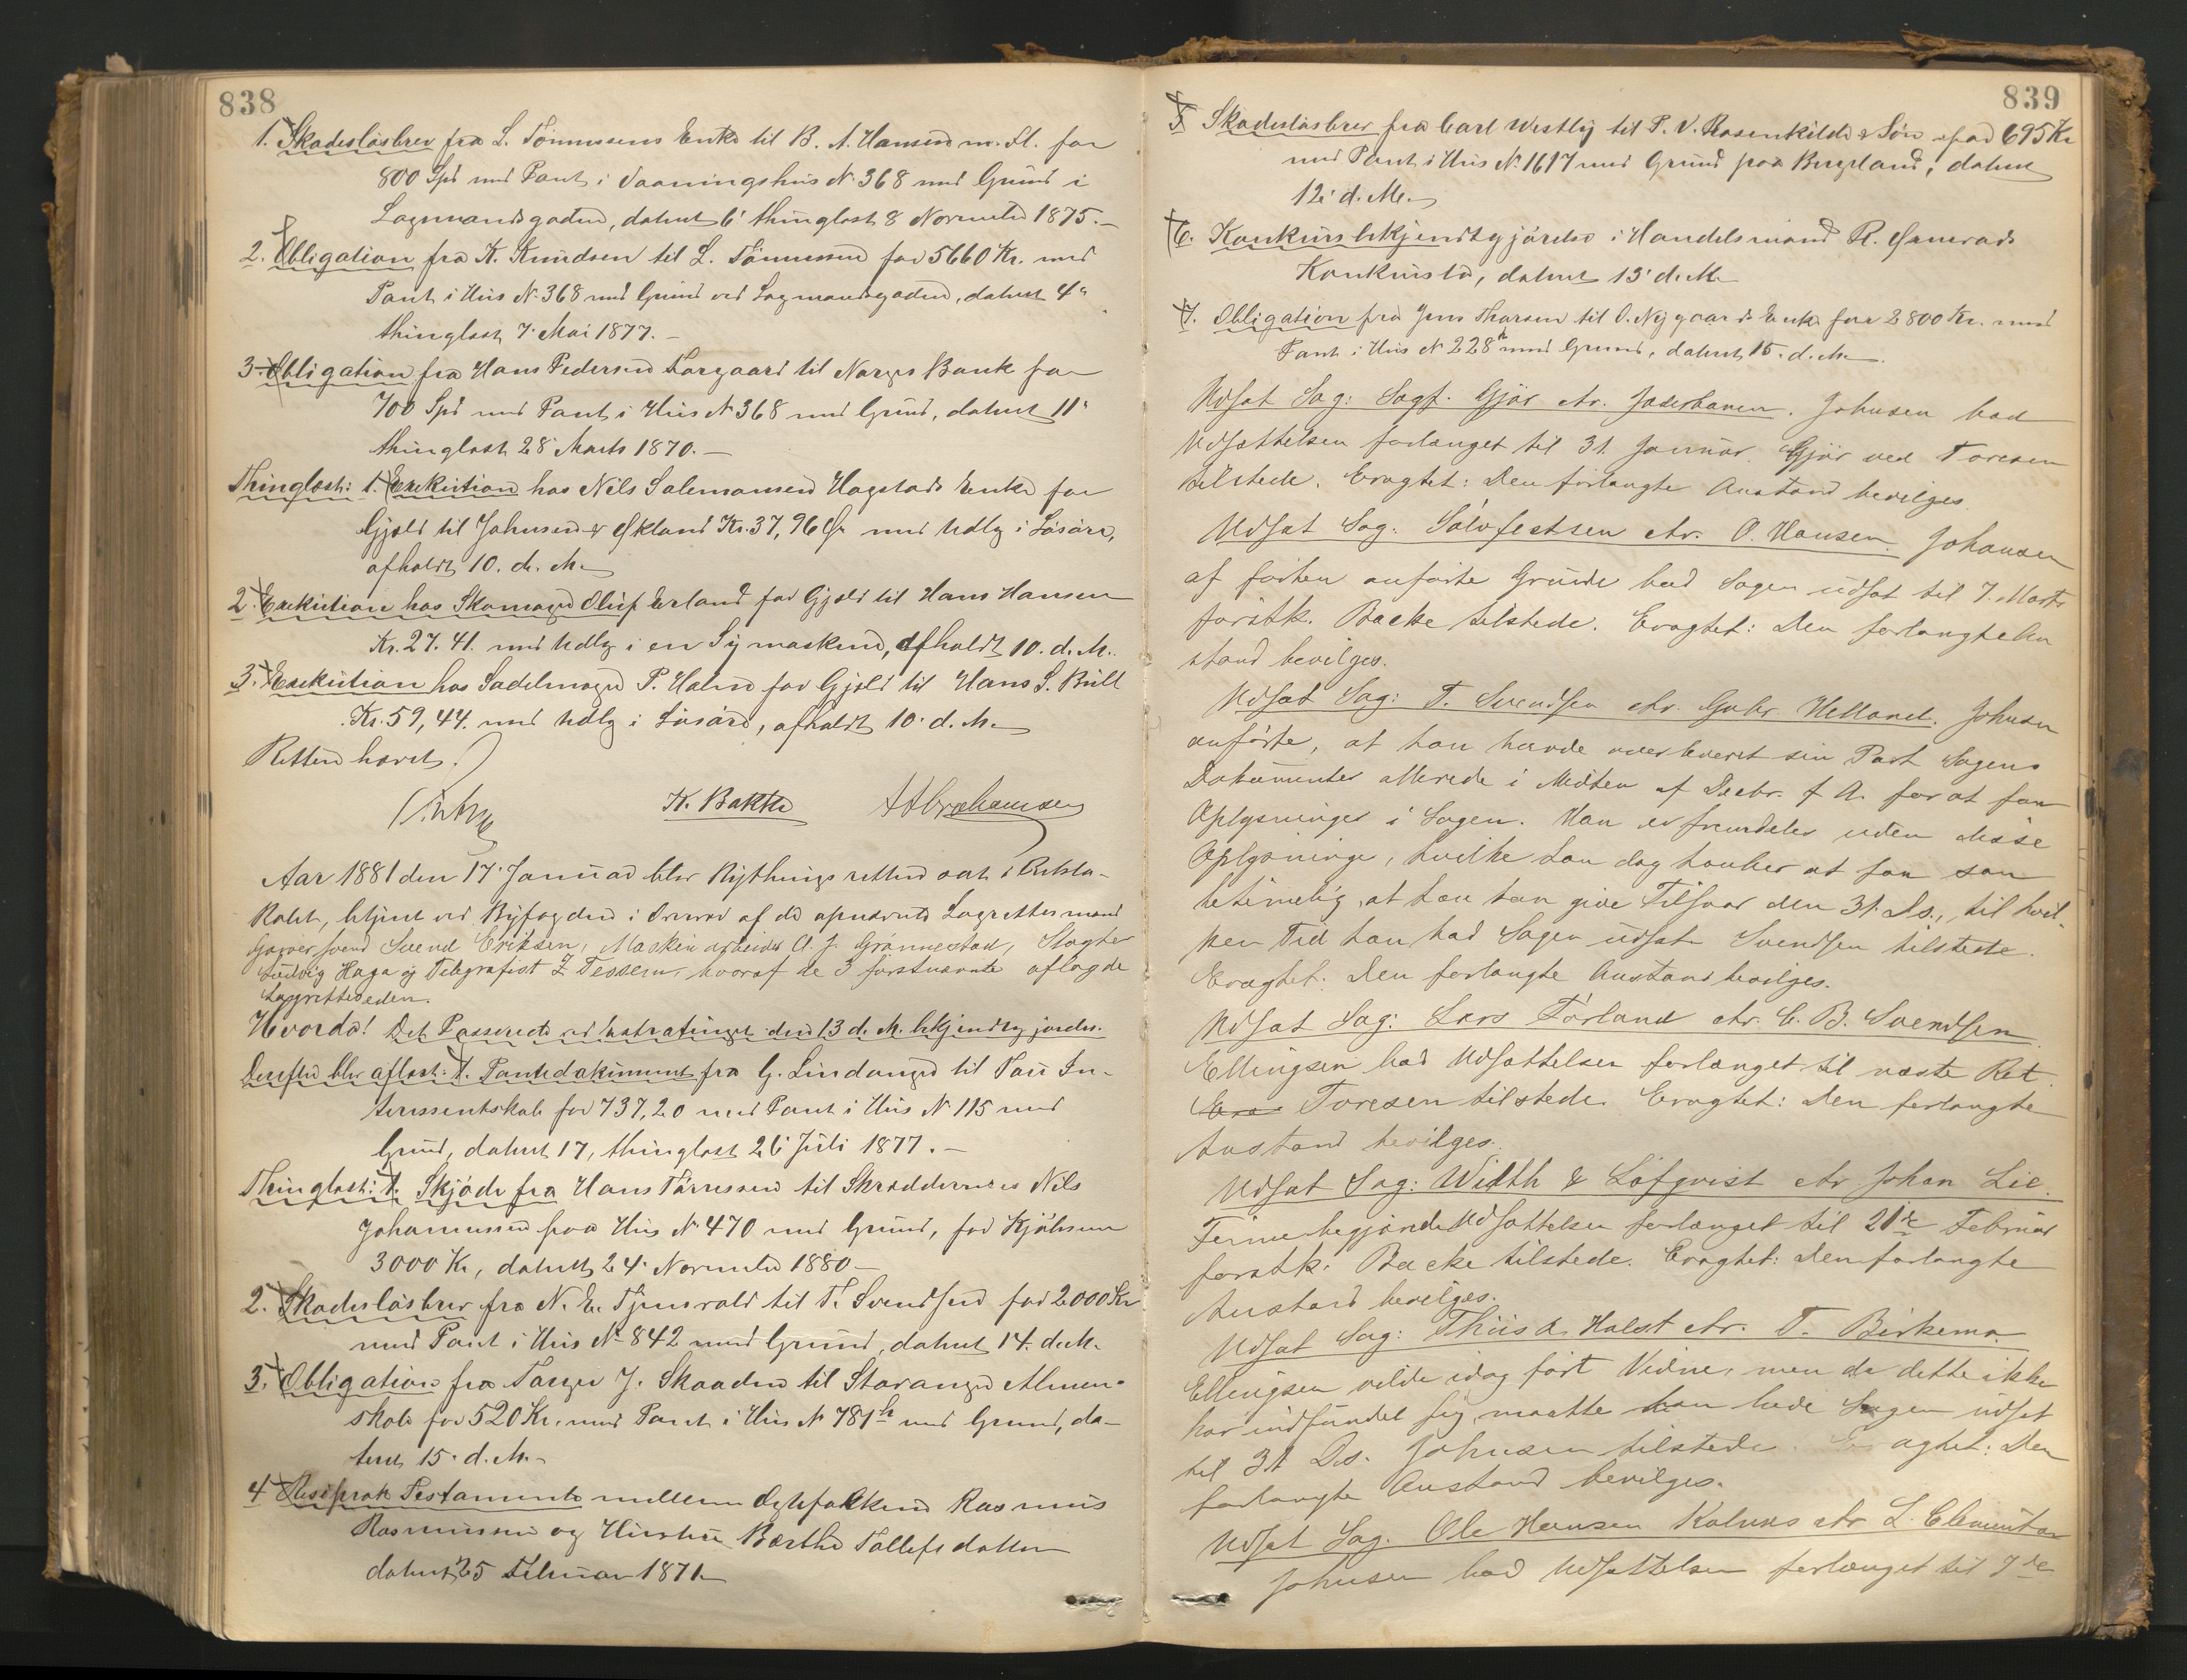 838
1. Skadesløsbrev fra L. Tønnessens Enke til B. A. Hansen m. fl. for
800 Spd med Pant i Vaaningshus No 368 med Grund i
Lagmandsgaden, datert 6' thinglæst 8 November 1875.-
2. Obligation fra K. Knudsen til L. Tønnessen for 5660 Kr. med
Pant i Hus No 368 med Grund ved Lagmandsgaden, datert 4'
thinglæst 7' Mai 1877.-
3. Obligation fra Hans Pedersen Torgaard til Norges Bank for
700 Spd med Pant i Hus No 368 med Grund, datert 11'
thinglæst 28' Marts 1870.-
Thinglæst: 1. Exekution hos Nils Salemonsen Hagstads Enke for
Gjæld til Johnsen & Økland Kr. 37,96 Ør med Udlæg i Løsøre,
afholdt 10. d. M.
2. Exekution hos Skomager Oluf Erland for Gjæld til Hans Hansen
Kr. 27. 41. med Udlæg i en Symaskine, afholdt 10. d. M.
3. Exekution hos Sadelmager P. Holm for Gjæld til Hans S. Bull
Kr. 59,44. med Udlæg i Løsøre, afholdt 10. d. M.
Retten hævet.
K. Bakke AAbrahamsen
Aar 1881 den 17' Januar blev Bythingsretten sat i Retslo-
kalet, betjent ved Byfogden i Overvær af de opnævnte Lagrettesmænd
Garversvend Svend Eriksen, Maskinarbeider A. J. Grønnestad, Slagter
Ludvig Haga og Telegrafist Z Tessem, hvoraf de 3 førstnævnte aflagde
Lagretteseden.
Hvorda! Det Passerede ved Extratinget den 13 d. M. bekjendtgjordes.
Derefter blev aflæst: 1. Pantedokument fra G. Lindanger til Pau In-
teressentskab for 737,20 med Pant i Hus No 115 med
Grund, datert 17, thinglæst 26' Juli 1877.-
Thinglæst: 1. Skjøde fra Hans Tørressen til Skræddermes Nils
Johannessen paa Hus No 470 med Grund, for Kjøbesum
3000 Kr, datert 24' November 1880-
2. Skadesløsbrev fra N. E. Tjensvold til T. Svendsen for 2000 Kr
med Pant i Hus No 842 med Grund, datert 14. d. M.
3. Obligation fra Torger J. Skaaden til Stavanger Almen-
skole for 520 Kr. med Pant i Hus No 781 b med Grund, da-
tert 15. d. M.-
4. Resiprok Testamente mellem Ægtefolkene Rasmus
Rasmussen og Hustru Bærthe Tollefsdatter
datert 25 Februar 1871
839
5 Skadesløsbrev fra Carl Westly til P. V. Rosenkilde & Søn for 695 Kr
med Pant i Hus No 1617 med Grund paa Bergeland, datert
12' d. M.
6. Konkursbekjendtgjørelse i Handelsmand R. Ørnerads
Konkursbo, datert 13' d. M.
7. Obligation fra Jens Thorsen til O. Nygaards Enke for 2800 Kr. med
Pant i Hus No 228 b med Grund, datert 15. d. M.
Udsat Sag: Sagf. Gjør ctr. Jæderbanen. Johnsen bad
Udsættelsen forlænget til 31. Januar. Gjør ved Toresen
tilstede. Eragtet: Den forlangte Anstand bevilges.
Udsat Sag: Sølvfestsen ctr. O. Hansen. Johansen
af forhen anførte Grunde bad Sagen udsat til 7. Marts
førstk. Backe tilstede. Eragtet: Den forlangte An
stand bevilges.
Udsat Sag: T. Svendsen ctr. Gabr Helland. Johnsen
anførte, at han havde overleveret sin Part Sagens
Dokumenter allerede i Midten af Decbr. f A. for at faa
Oplysninger i Sagen. Han er fremdeles uden disse
Oplysninger, hvilke han dog tænker at faa saa
betimelig, at han kan give Tilsvar den 31. Ds., til hvil-
ken Tid han bad Sagen udsat. Svendsen tilstede.
Eragtet: Den forlangte Anstand bevilges.
Udsat Sag: Lars Førland ctr. C. B. Svendsen.
Ellingsen bad Udsættelsen forlænget til næste Ret.
Toresen tilstede. Eragtet: Den forlangte
Anstand bevilges.
Udsat Sag: Width & Löfqvist ctr Johan Lie.
Feine begjærede Udsættelsen forlænget til 21de Februar
førstk. Backe tilstede. Eragtet: Den forlangte
Anstand bevilges.
Udsat Sag: Thiis & Holst ctr. T. Birkemo.
Ellingsen vilde idag ført Vidne, men da dette ikke
har indfundet sig, maatte han bede Sagen udsat
til 31 Ds. Johnsen tilstede. Eragtet: Den
forlangte Anstand bevilges.
Udsat Sag. Ole Hansen Kolnes ctr L. Clementsen
Johnsen bad Udsættelsen forlænget til 7de